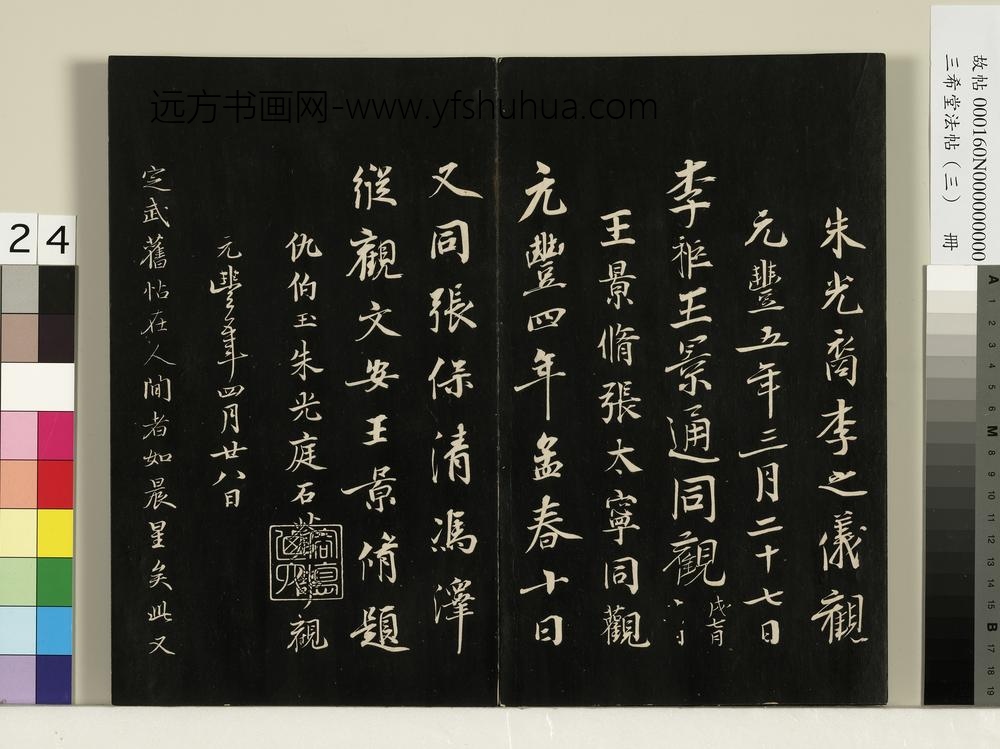 远方书画网-www.yfshuhua.com
故帖 000160N000000000
三希堂法帖（三） 册
朱光裔李之儀觀
元豐五年三月二十七日
李秬王景通同觀
王景脩張太寧同觀
元豐四年孟春十日
又同張保清馮澤
縱觀文安王景脩題
仇伯玉朱光庭石 觀
元豐年四月廿八日
定武舊帖在人間者如晨星矣此又
24
A 1 2 3 4 5 6 M 8 9 10 11 12 13 14 15 B 17 18 19